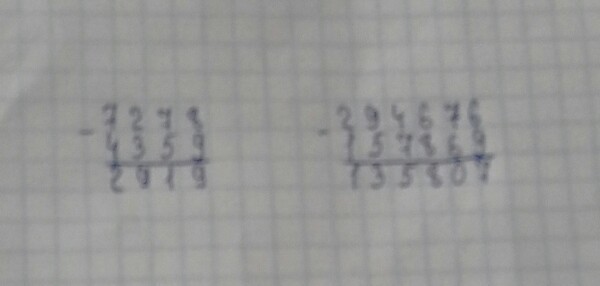 - 7278
4359
2919
- 294676
157869
135807